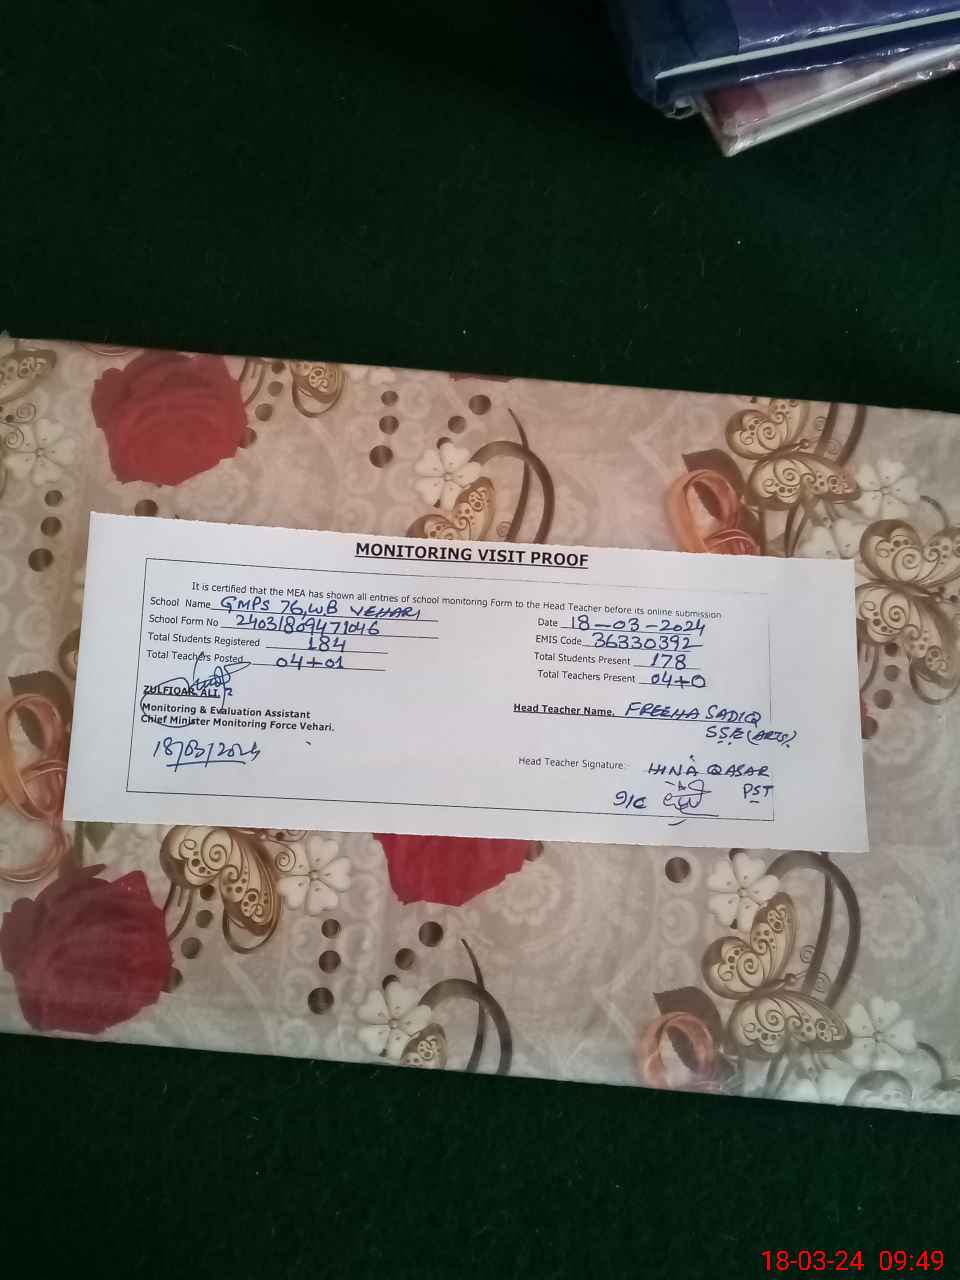 MONITORING VISIT PROOF
It is certified that the MEA has shown all entries of school monitoring Form to the Head Teacher before its online submission
School Name GMPS 76, WB VEHARI
Date 18-03-2024
School Form No 24031809471046
EMIS Code 36330392
Total Students Registered 184
Total Students Present 178
Total Teachers Posted 04+01
Total Teachers Present 04+0
ZULFIQAR ALI
Monitoring & Evaluation Assistant
Chief Minister Monitoring Force Vehari.
18/03/2024
Head Teacher Name. FREEHA SADIQ
SSE (ARTS)
Head Teacher Signature:- HINA QASAR
PST
18-03-24 09:49